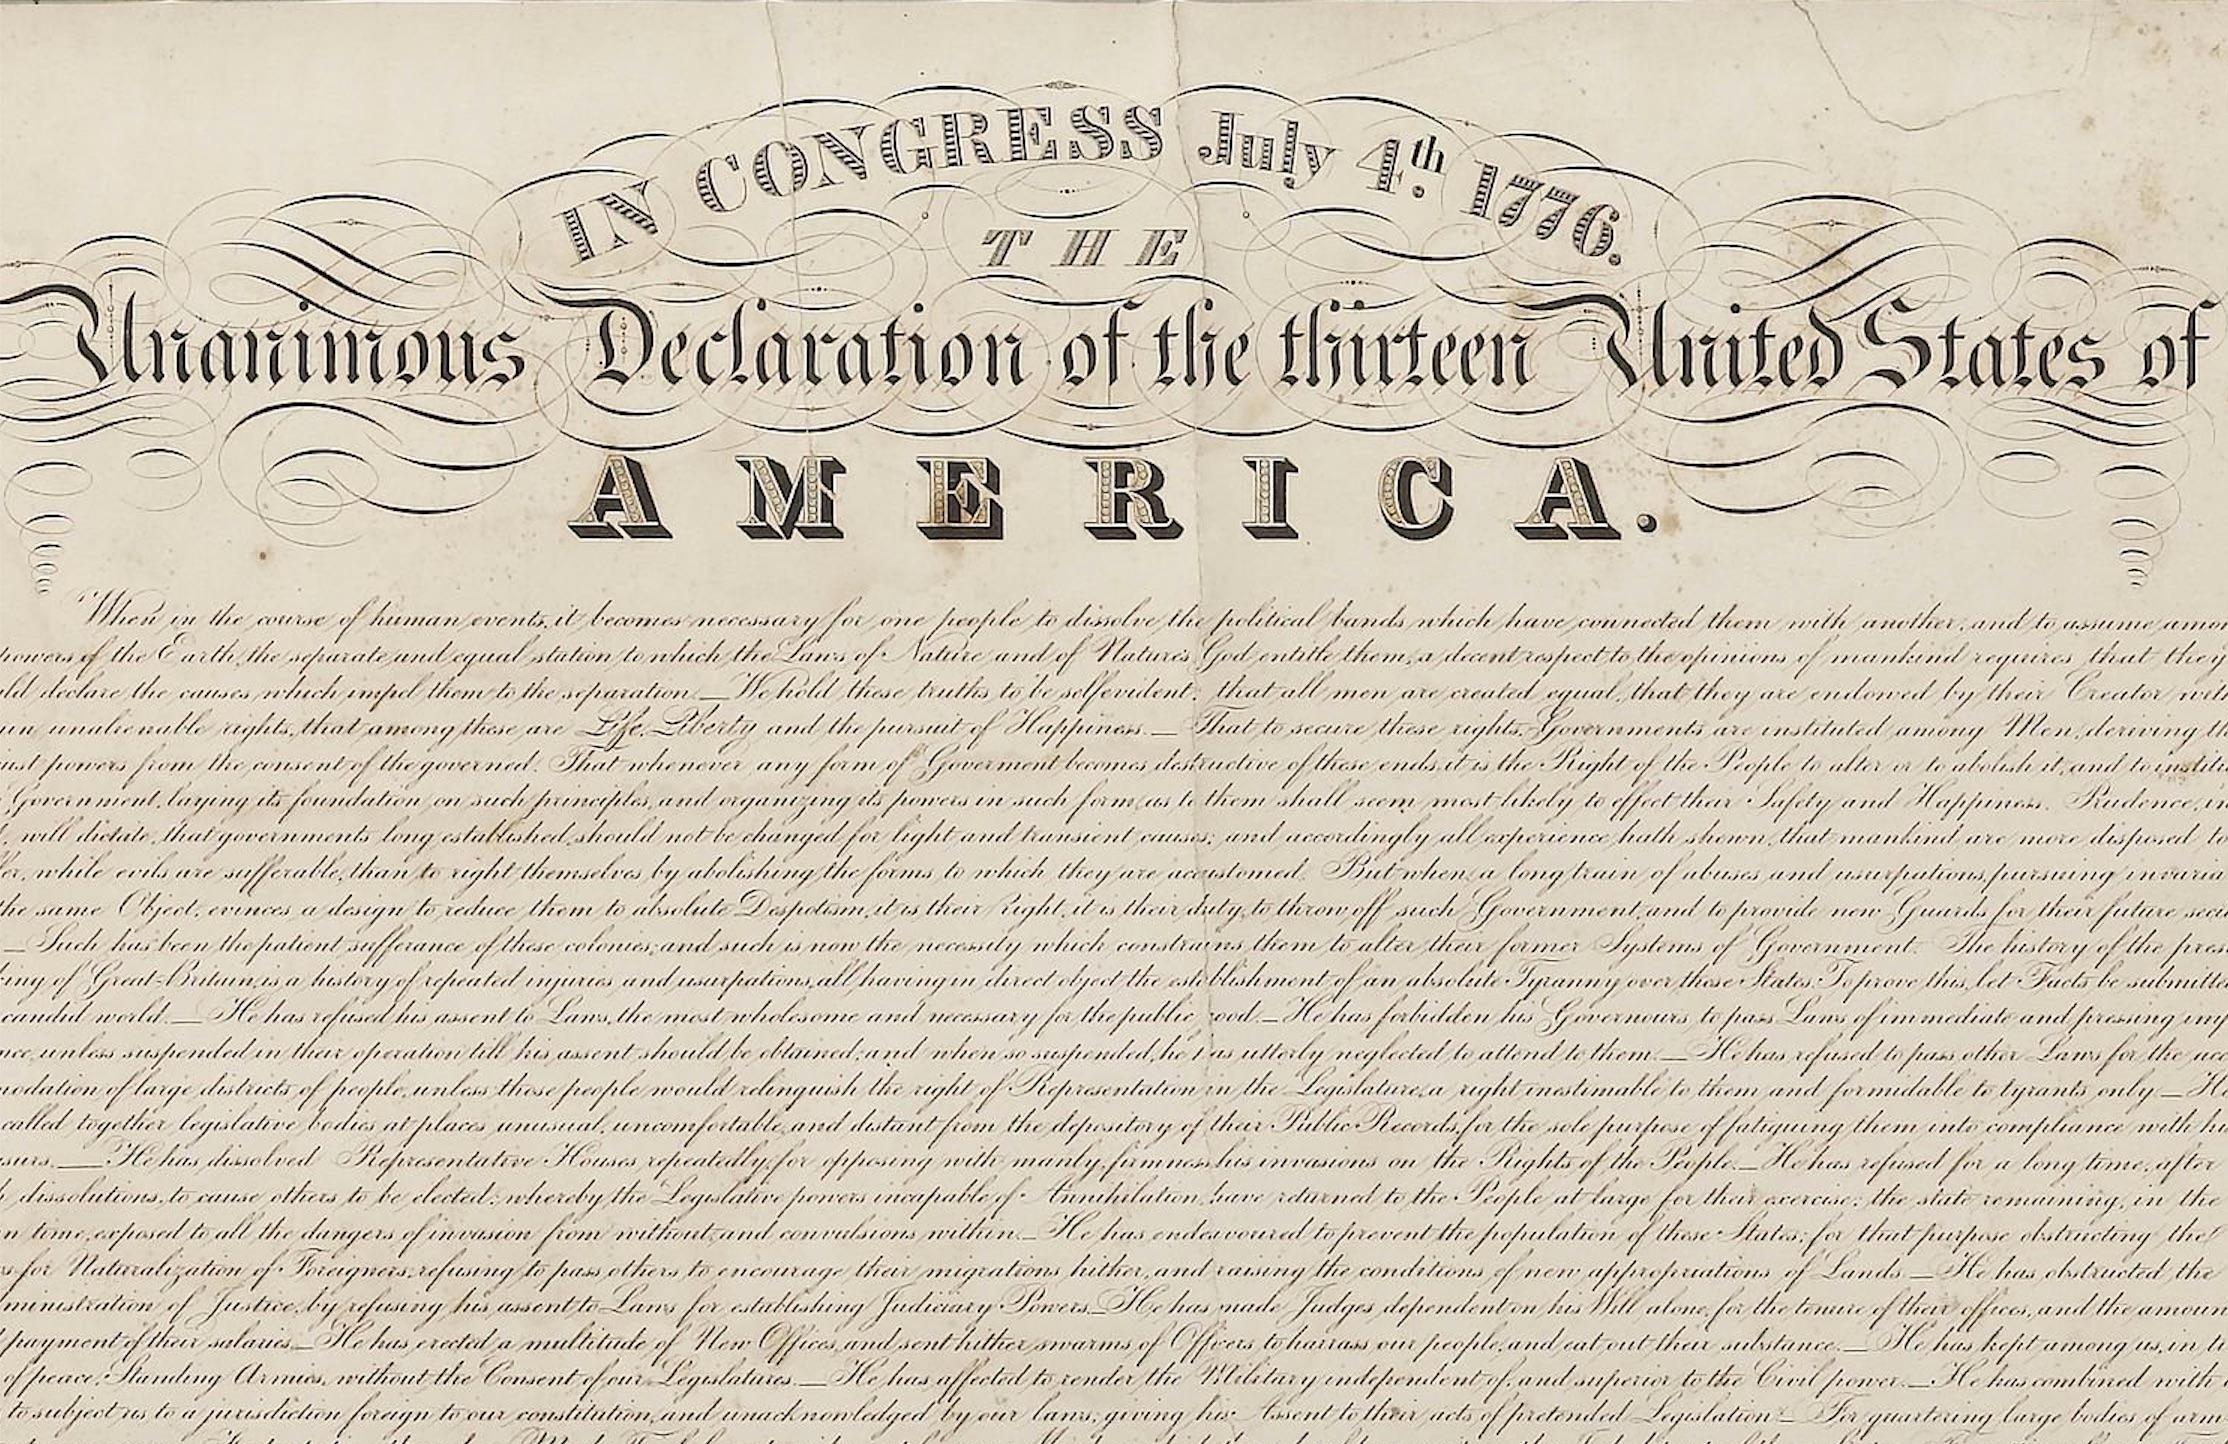 IN CONGRESS July 4th. 1776.
THE
Unanimous Declaration of the thirteen United States of
AMERICA.
When in the course of human events, it becomes necessary for one people to dissolve the political bands which have connected them with another, and to assume
powers of the Earth, the separate and equal station to which the Laws of Nature and of Nature's God entitle them, a decent respect to the opinions of mankind requires that they
declare the causes which impel them to the separation. — We hold these truths to be self evident; that all men are created equal, that they are endowed by their Creator with
unalienable rights, that among these are Life, Liberty and the pursuit of Happiness. — That to secure these rights, Governments are instituted among Men, deriving
powers from the consent of the governed. That whenever any form of Goverment becomes destructive of these ends, it is the Right of the People to alter or to abolish it, and to
Government, laying its foundation on such principles, and organizing its powers in such form, as to them shall seem most likely to effect their Safety and Happiness. Prudence,
will dictate, that governments long established, should not be changed for light and transient causes; and accordingly all experience hath shewn, that mankind are more disposed to
while evils are sufferable, than to right themselves by abolishing the forms to which they are accustomed. But when, a long train of abuses and usurpations, pursuing
the same Object, evinces a design to reduce them to absolute Despotism, it is their right, it is their duty, to throw off such Government, and to provide new Guards for their future
— Such has been the patient sufferance of these colonies; and such is now the necessity which constrains them to alter their former Systems of Government. The history of the
of Great-Britain, is a history of repeated injuries and usurpations, all having in direct object the establishment of an absolute Tyranny over these States: To prove this, let Facts be
candid world. — He has refused his assent to Laws, the most wholesome and necessary for the public — He has forbidden his Governours to pass Laws of immediate and pressing
unless suspended in their operation till his assent should be obtained; and when so suspended, he has utterly neglected to attend to them. — He has refused to pass other Laws for the
of large districts of people, unless those people would relinquish the right of Representation in the Legislature, a right inestimable to them and formidable to tyrants only — He
called together legislative bodies at places unusual, uncomfortable, and distant from the depository of their Public Records, for the sole purpose of fatiguing them into compliance with
— He has dissolved Representative Houses repeatedly, for opposing with manly firmness his invasions on the Rights of the People. — He has refused for a long time, after
dissolutions, to cause others to be elected; whereby the Legislative powers incapable of Annihilation, have returned to the People at large for their exercise; the state remaining, in the
time, exposed to all the dangers of invasion from without, and convulsions within. — He has endeavoured to prevent the population of these States; for that purpose obstructing the
for Naturalization of Foreigners, refusing to pass others to encourage their migrations hither, and raising the conditions of new appropriations of Lands. — He has obstructed the
of Justice, by refusing his assent to Laws for establishing Judiciary Powers. — He has made Judges dependent on his Will alone, for the tenure of their offices, and the
payment of their salaries. — He has erected a multitude of New Offices, and sent hither swarms of Officers to harrass our people, and eat out their substance. — He has kept among us, in
of peace, Standing Armies, without the Consent of our Legislatures. — He has affected to render the Military independent of, and superior to the Civil power. — He has combined with
to subject us to a jurisdiction foreign to our constitution, and unacknowledged by our laws; giving his Assent to their acts of pretended Legislation — For quartering large bodies of